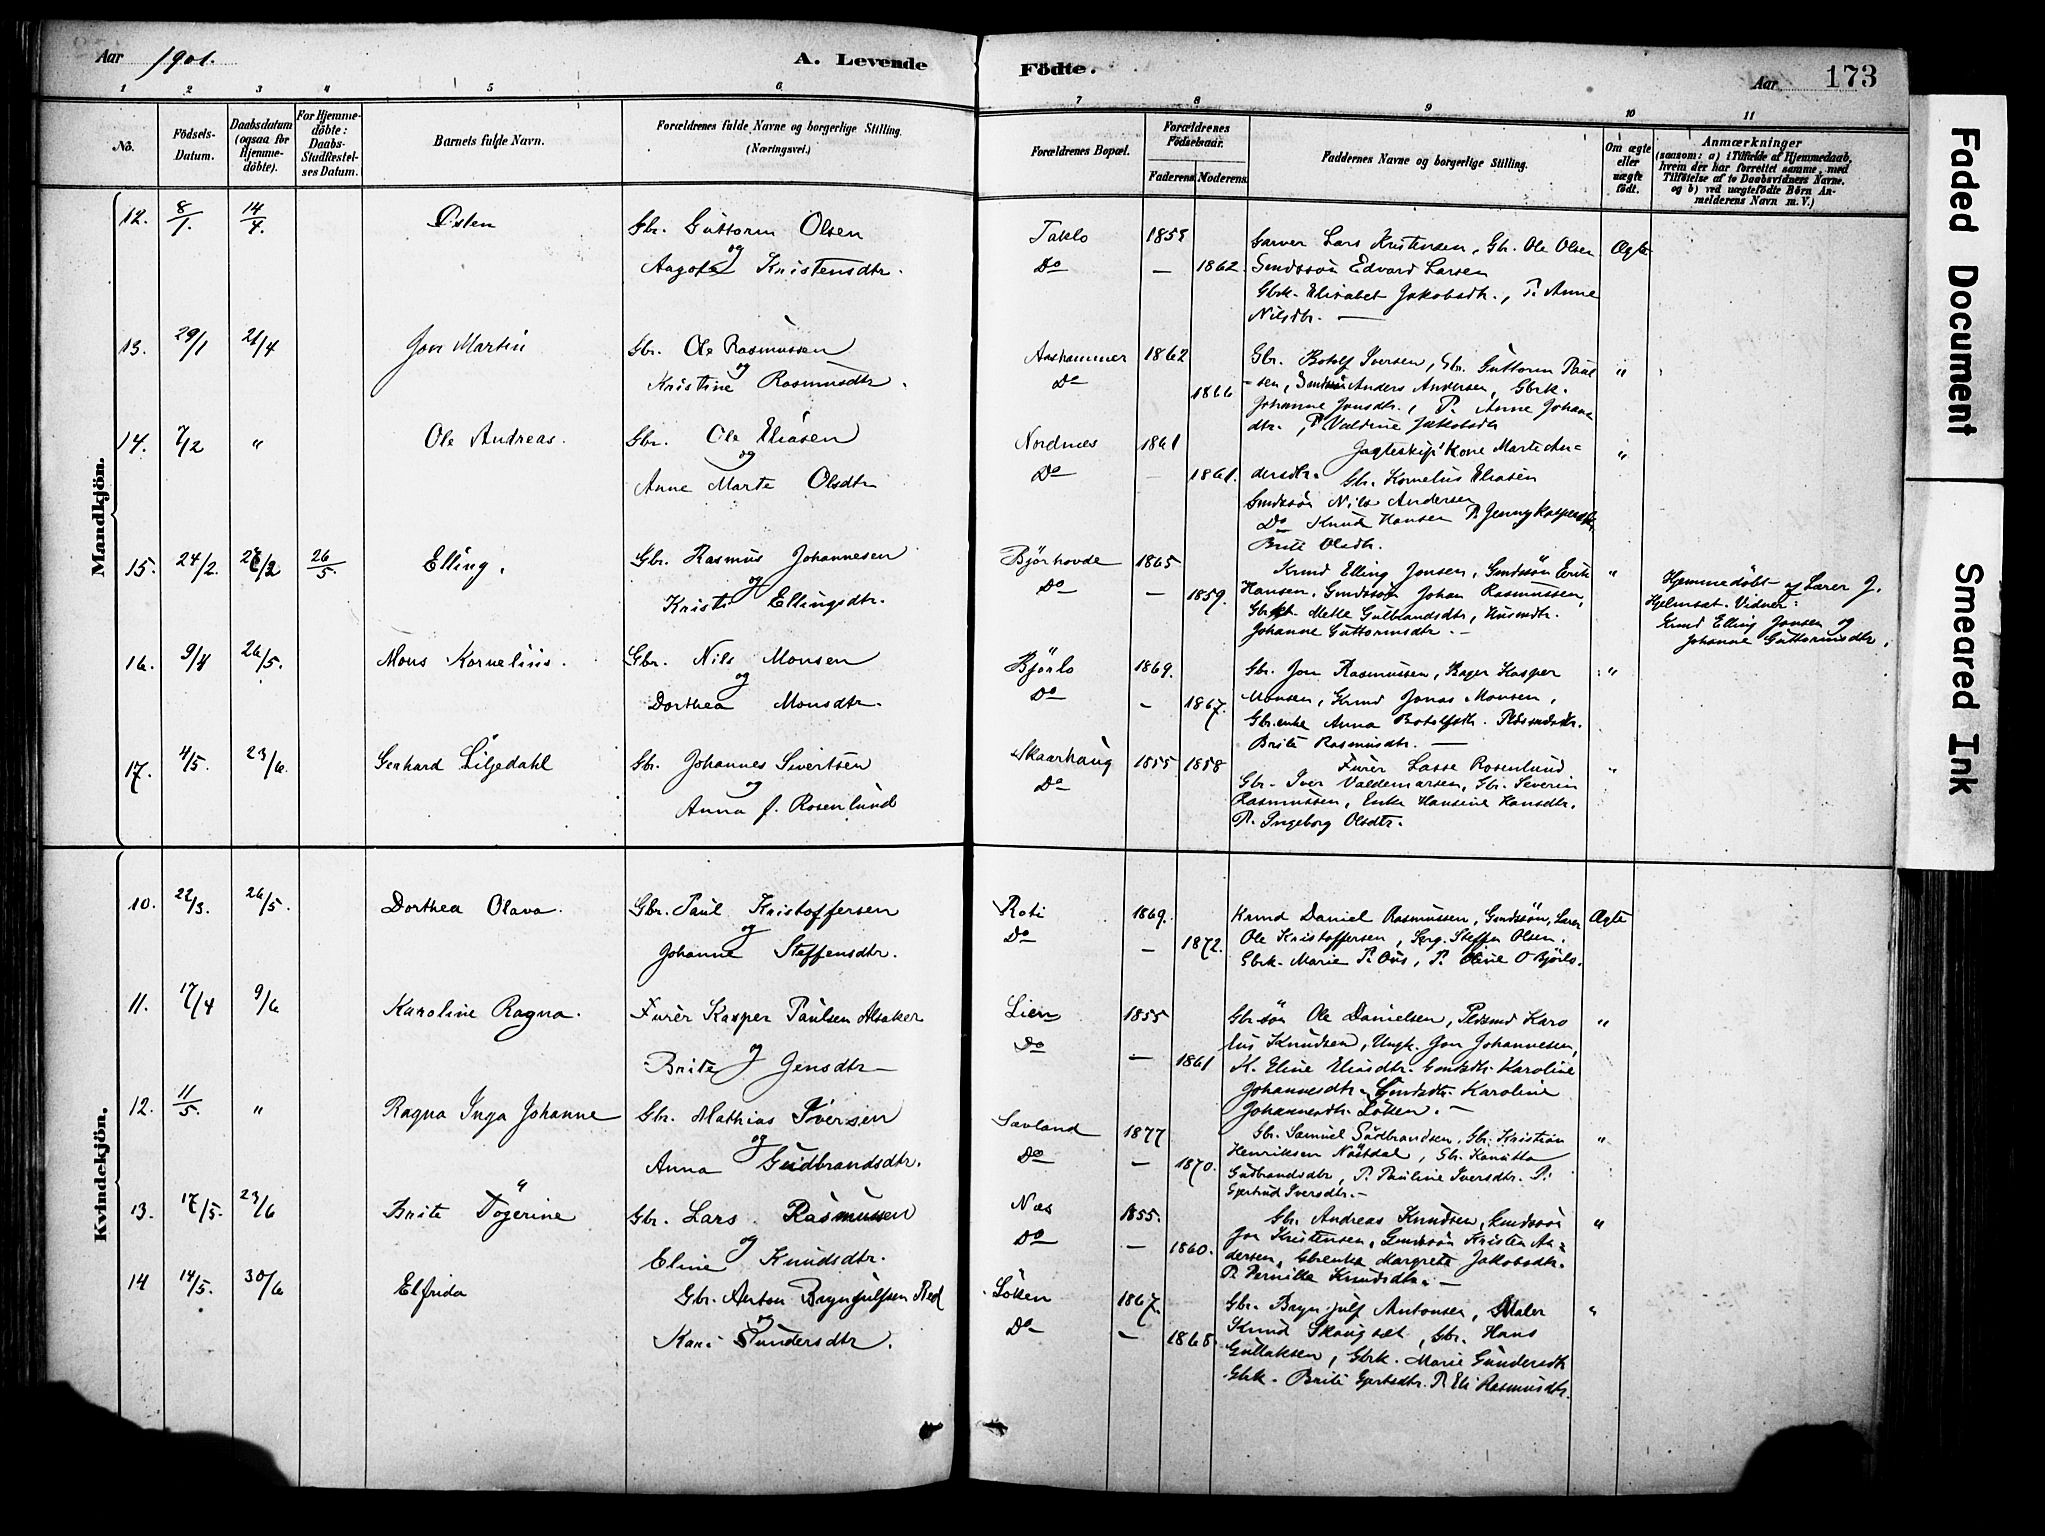 Aar 1901.
A. Levende
Födte.
Aar
173
1 2 3 4 5 6 7 8 9 10 11
No.
Födsels-
Datum.
Daabsdatum
(ogsaa for
Hjemme-
döbte).
For Hjemme-
döbte:
Daabs-
Stadfæstel-
ses Datum.
Barnets fulde Navn.
Forældrenes fulde Navne og borgerlige Stilling.
(Næringsvei.)
Forældrenes Bopæl.
Forældrenes
Födselsaar.
Faderens. Moderens.
Faddernes Navne og borgerlige Stilling.
Om ægte
eller
uægte
födt.
Anmærkninger
(saasom: a) i Tilfælde af Hjemmedaab,
hvem der har forrettet samme, med
Tilföielse af to Daabsvidners Navne,
og b) ved uægtefödte Börn An-
melderens Navn m. V.)
Mandkjön.
12. 8/1. 14/4. Østen Gbr. Guttorm Olsen
og
Aagote Kristensdtr.
Taklo 1855
Do — 1862.
Garver Lars Kristensen, Gbr. Ole Olsen Ægte
Gmdssön Edvard Larsen
Gbrk. Elisabet Jakobsdtr., P. Anne
Nilsdtr. —
13. 29/1 21/4 Jon Martin Gbr. Ole Rasmussen
og
Kristine Rasmusdtr.
Aashammer 1862
Do 1866
Gbr. Botolf Iversen, Gbr. Guttorm Paul "
-sen, Anders Andersen, Gbrk.
Johanne Jonsdtr., P. Anne Johans
dtr., P. Valdine Jakobsdtr
14. 7/2 " Ole Andreas. Gbr. Ole Eliasen
og
Anne Marte Olsdtr
Nordnes 1861
Do — 1861.
Jagteskip' Kone Marte An- "
dersdtr. Gbr. Kornelius Eliasen
Gmdssön Nils Andersen
Do Knud Hansen P. Jenny Kaspersdtr,
Brite Olsdtr.
15. 24/2. 26/5. Elling. Gbr. Rasmus Johannesen
og
Kristi Ellingsdtr.
Björhovde 1865
Do — 1859.
Krmd Elling Jonsen, Gmdssön Eirik "
Hansen, Gmdssön Johan Rasmussen,
Mette Gulbrandsdtr, Husmdtr.
Johanne Guttormsdtr. —
Hjemmedöbt af Lærer J.
Hjelmset. Vidner:
Krmd Elling Jonsen og
Johanne Guttormsdtr.
16. 9/4 26/5. Mons Kornelius. Gbr. Nils Monsen
og
Dorthea Monsdtr.
Björlo 1869.
Do — 1867.
Gbr. Jon Rasmussen, Bager Kasper "
Monsen, Krmd Jonas Monsen,
Gbr.enke Anna Botolfsdtr.
Brite Rasmusdtr. —
17. 4/5. 23/6. Gerhard Liljedahl Gbr. Johannes Sivertsen
og
Anna f. Rosenlund
Skaarhaug 1855 1858
Do
Furér Lasse Rosenlund "
Gbr. Iver Valdemarsen, Gbr. Severin
Rasmussen, Enke Hansine Hansdtr.
P. Ingeborg Olsdtr.
Kvindekjön.
10. 22/3. 26/5. Dorthea Olava. Gbr. Paul Kristoffersen
og
Johanne Steffensdtr.
Roti 1869.
Do — 1872.
Krmd Daniel Rasmussen, Gmdssön, Lærer Ægte
Ole Kristoffersen, Serg. Steffen Olsen.
Gbrk. Marie P. Ous, P. Oline O Björlo.
11. 17/4 9/6 Karoline Ragna. Furér Kasper Paulsen Alsaker
og
Brite Jensdtr —
Lien 1855
Do — 1861
Gbrsön Ole Danielsen, Karo "
lus Knudsen, Ungk. Jon Johannesen,
K. Eline Eliasdtr. Gmdsdtr. Karoline
Johannesdtr. Gmdsdtr. Karoline
Johannesdtr. Lökken. —
12. 11/5. " Ragna Inga Johanne Gbr. Mathias Iversen
og
Anna Gudbrandsdtr.
Savland 1877
Do — 1870.
Gbr. Samuel Gudbrandsen, Gbr. Kristian "
Henriksen Nöstdal, Gbr. Kanutta
Gudbrandsdtr, P. Pauline Iversdtr. P.
Gjertrud Iversdtr. —
13. 17/5. 23/6 Brite Dögerine Gbr. Lars Rasmussen
og
Eline Knudsdtr.
Næs 1855.
Do — 1860.
Gbr. Andreas Knudsen, Gmdssön "
Jon Kristensen, Gmdssön Kristen An-
dersen, Gbrenke Margrete Jakobsdtr.
P. Pernille Knudsdtr. —
14 14/5. 30/6 Elfrida Gbr. Anton Brynjulfsen Red
og
Kari Gundersdtr.
Lökken 1867.
Do — 1868.
Gbr. Brynjulf Antonsen, Maler "
Knud Skaugset, Gbr. Hans
Gullaksen, Gbrk. Marie Gundersdtr
Gbrk. Brite Gjertsdtr. P. Eli Rasmusdtr.
Faded Document
Smeared Ink